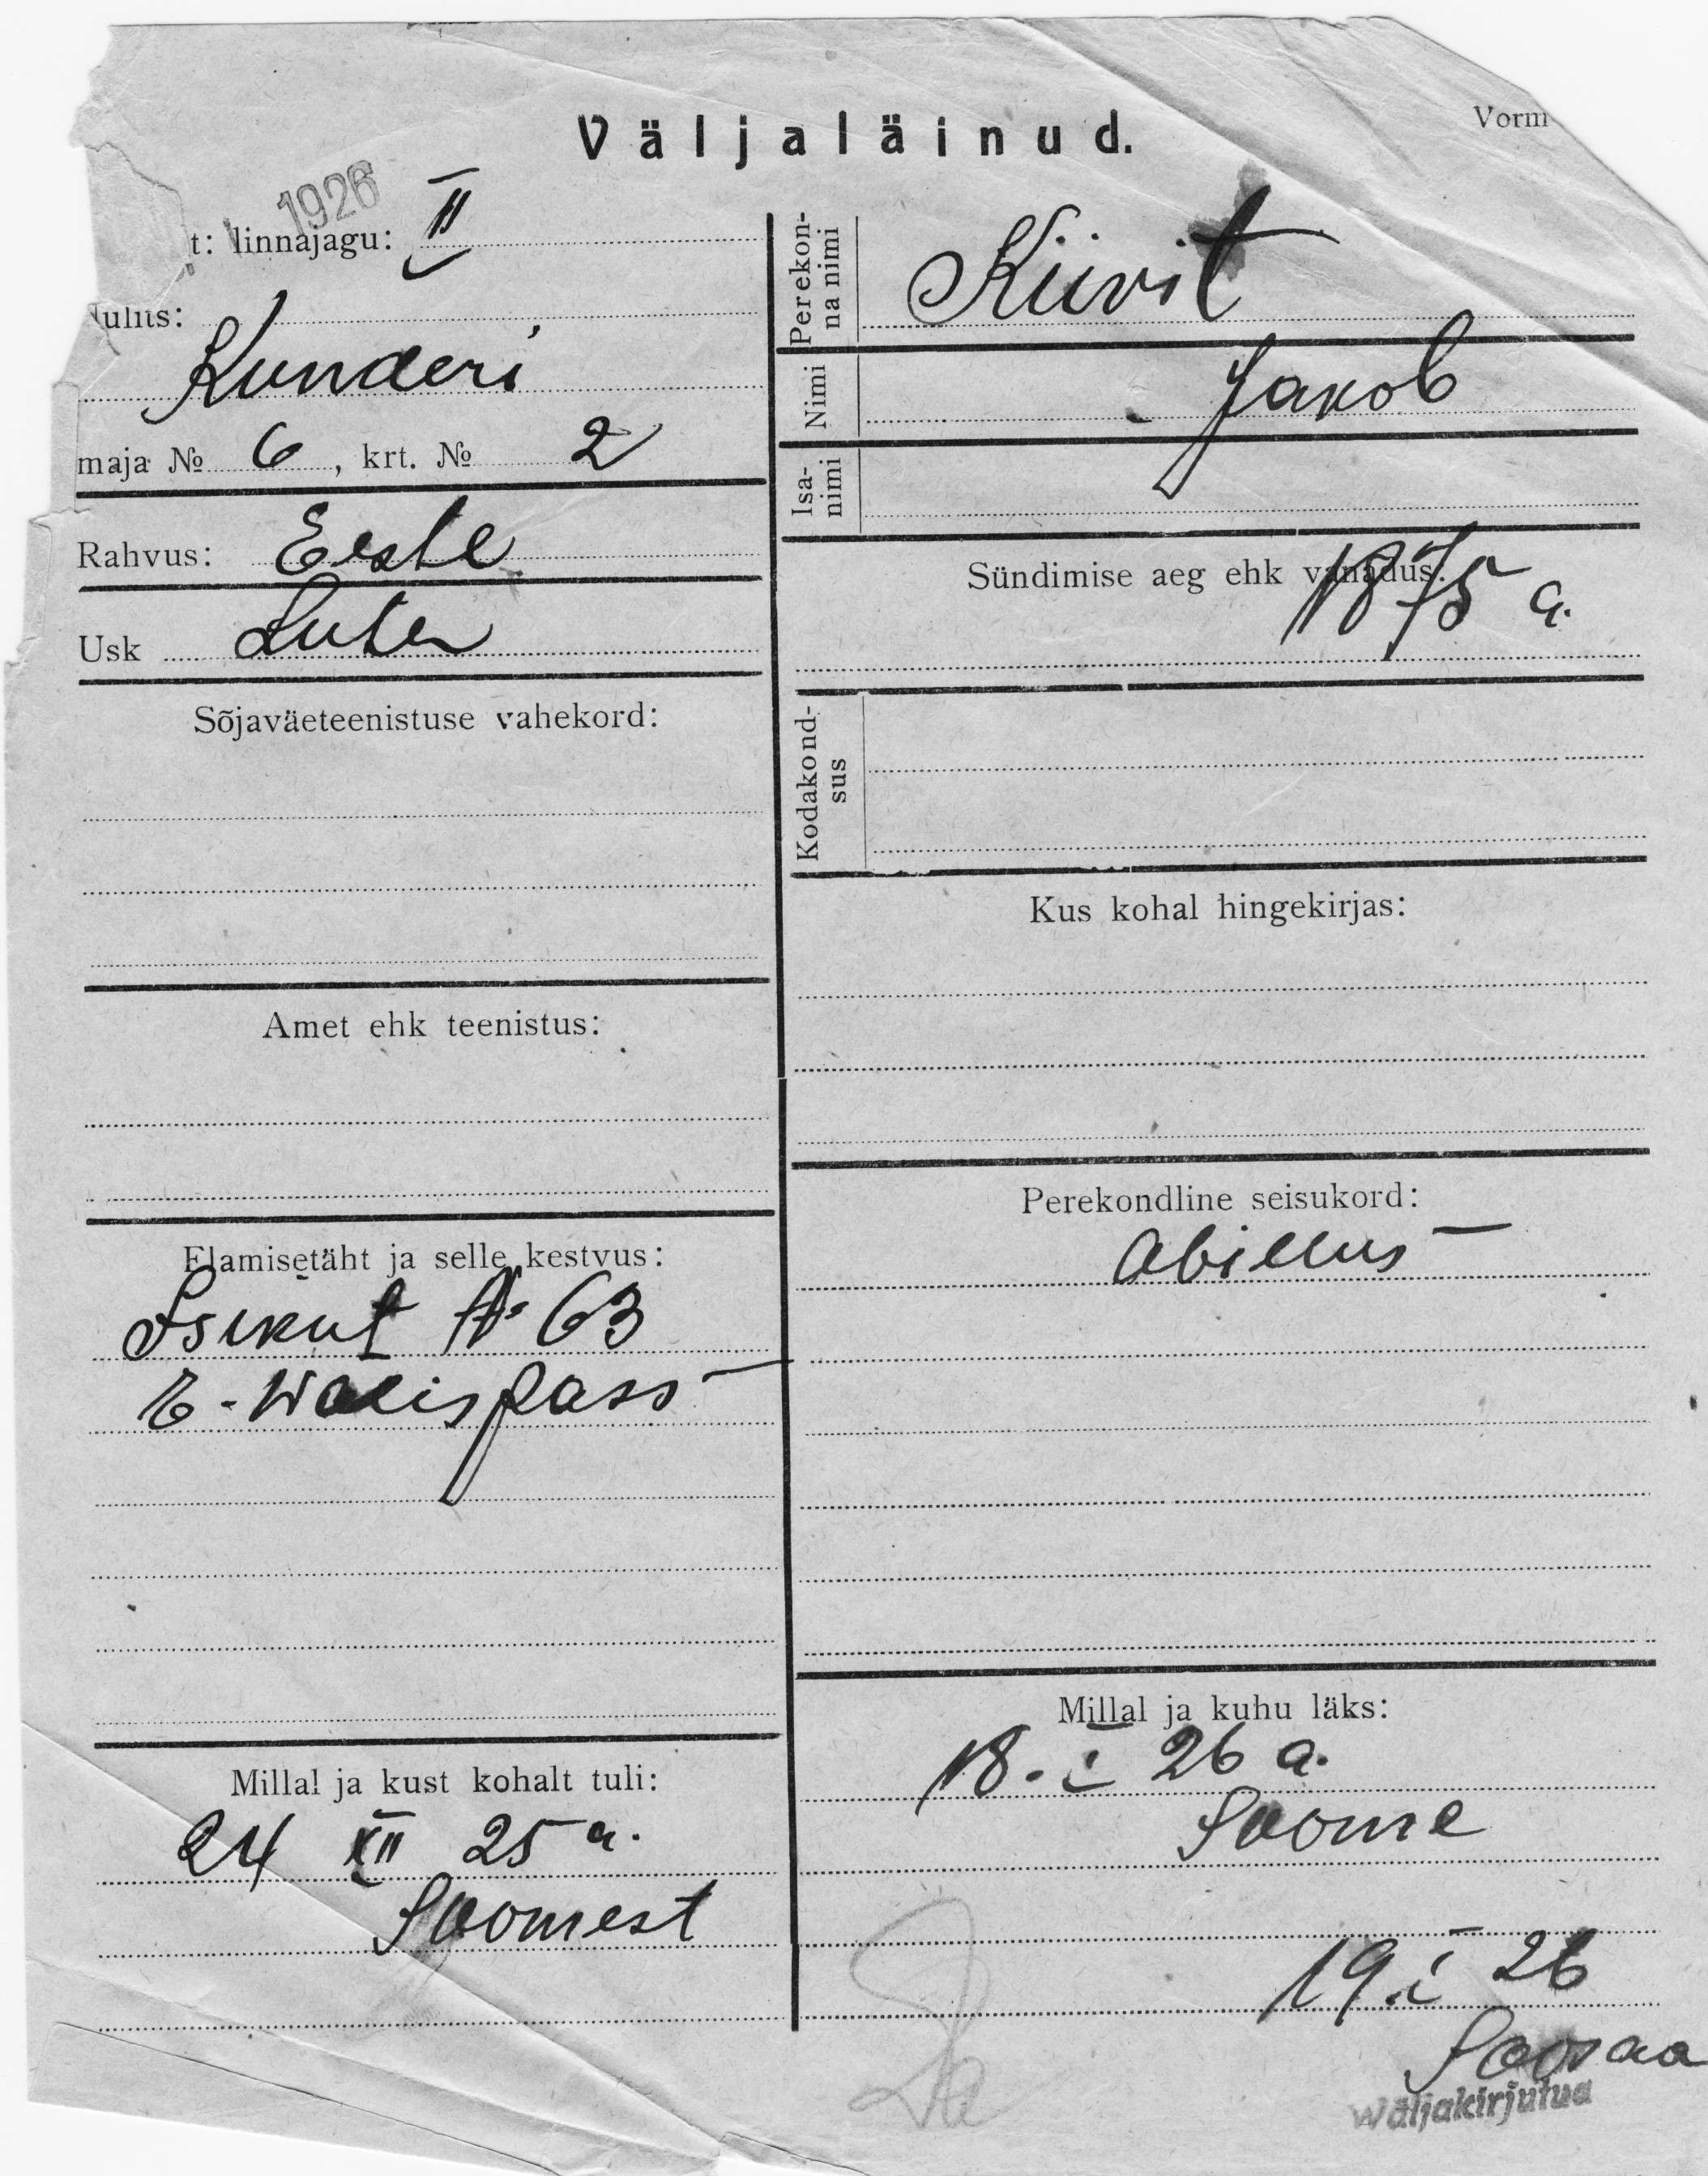 Väljaläinud.
Vorm
1926
t: linnajagu: II
Kunderi
maja № 6, krt. № 2
Rahvus: Eeste
Usk Luter
Sõjaväeteenistuse vahekord:
Amet ehk teenistus:
Elamisetäht ja selle kestvus:
Isikut № 63
E-Walispass
Millal ja kust kohalt tuli:
24 XII 25 a.
Soomest
Perekonna nimi
Kiivit
Nimi Jakob
Isa-
nimi
Sündimise aeg ehk vanadus:
1875 a.
Kodakond-
sus
Kus kohal hingekirjas:
Perekondline seisukord:
abielus
Millal ja kuhu läks:
18. I 26 a.
Soome
19. I 26
Wäljakirjutud